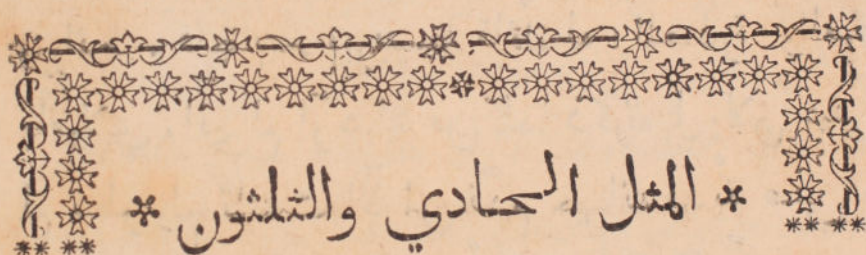 * المثل الحادي والثلثون *